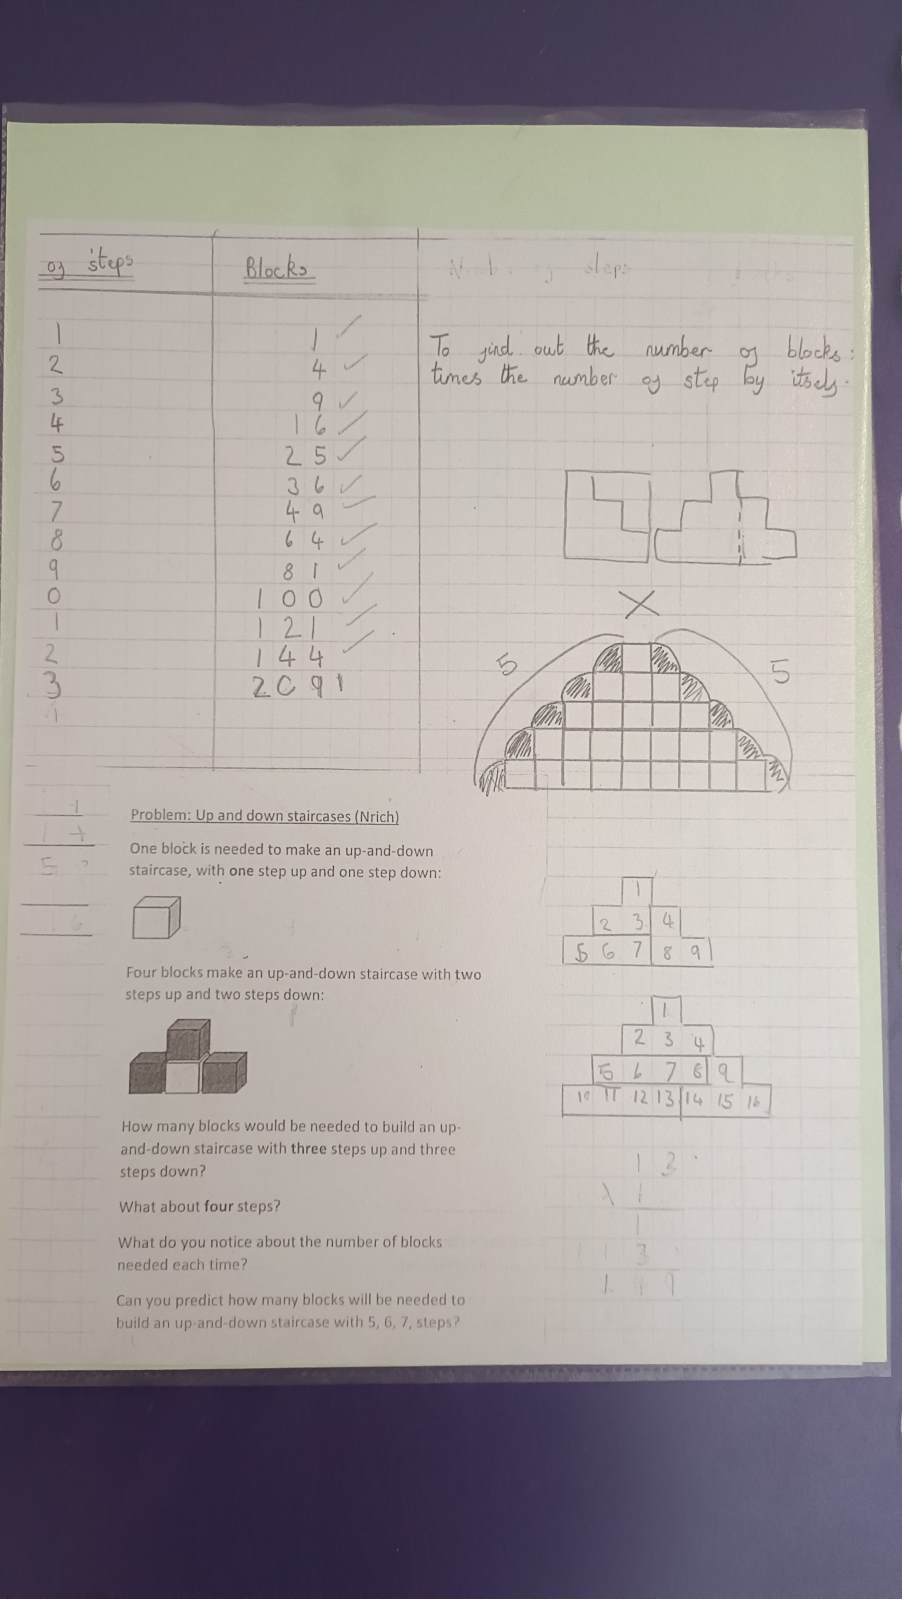 of steps Blocks
1 1
2 4
3 9
4 16
5 25
6 36
7 49
8 64
9 81
0 100
1 121
2 144
3 2091
To find out the number of blocks:
times the number of step by itself.
5 5
Problem: Up and down staircases (Nrich)
One block is needed to make an up-and-down
staircase, with one step up and one step down:
Four blocks make an up-and-down staircase with two
steps up and two steps down:
How many blocks would be needed to build an up-
and-down staircase with three steps up and three
steps down?
What about four steps?
What do you notice about the number of blocks
needed each time?
Can you predict how many blocks will be needed to
build an up-and-down staircase with 5, 6, 7, steps?
1
2 3 4
5 6 7 8 9
1
2 3 4
5 6 7 8 9
10 11 12 13 14 15 16
1 3
1
1
3